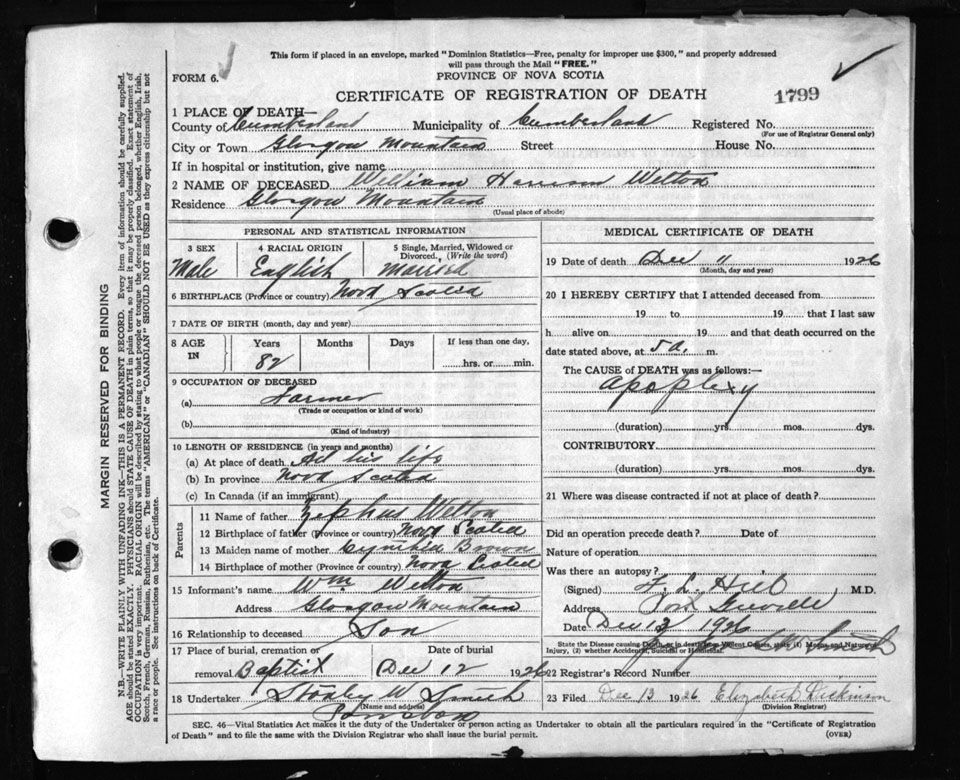 This form if placed in an envelope, marked "Dominion Statistics—Free, penalty for improper use $300," and properly addressed
will pass through the Mail "FREE."
FORM 6.
PROVINCE OF NOVA SCOTIA
CERTIFICATE OF REGISTRATION OF DEATH
1799
1 PLACE OF DEATH
County of Cumberland Municipality of Cumberland Registered No.
(For use of Registrar General only)
City or Town Glasgow Mountain Street House No.
If in hospital or institution, give name
2 NAME OF DECEASED William Welton
Residence Glasgow Mountain
(Usual place of abode)
PERSONAL AND STATISTICAL INFORMATION
3 SEX 4 RACIAL ORIGIN 5 Single, Married, Widowed or
Divorced, (Write the word)
Male English Married
6 BIRTHPLACE (Province or country) Nova Scotia
7 DATE OF BIRTH (month, day and year)
8 AGE Years Months Days If less than one day,
IN 82 hrs. or min.
9 OCCUPATION OF DECEASED
(a) Farmer
(Trade or occupation or kind of work)
(b)
(Kind of industry)
10 LENGTH OF RESIDENCE (in years and months)
(a) At place of death All his life
(b) In province Nova Scotia
(c) In Canada (if an immigrant)
Parents
11 Name of father Zephus Welton
12 Birthplace of father (Province or country) Nova Scotia
13 Maiden name of mother
14 Birthplace of mother (Province or Country) Nova Scotia
15 Informant's name Wm. Welton
Address Glasgow Mountain
16 Relationship to deceased Son
17 Place of burial, cremation or Date of burial
removal Baptist Dec 12 1926
18 Undertaker W Smith
(Name and address)
MEDICAL CERTIFICATE OF DEATH
19 Date of death Dec 11 1926
(Month, day and year)
20 I HEREBY CERTIFY that I attended deceased from
19 to 19 that I last saw
h alive on 19 and that death occurred on
date stated above, at 5 a. m.
The CAUSE of DEATH was as follows:—
Apoplexy
(duration) yrs. mos. dys.
CONTRIBUTORY.
(duration) yrs. mos. dys.
21 Where was disease contracted if not at place of death?
Did an operation precede death? Date of
Nature of operation
Was there an autopsy?
(Signed) M.D.
Address Port Greville
Date Dec 13 1926
State the Disease causing Death, or in deaths from Violent Causes, state (1) Means and Nature of
Injury, (2) whether Accidental, Suicidal or Homicidal.
22 Registrar's Record Number
23 Filed Dec 13 1926 Elizabeth Dickinson
(Division Registrar)
SEC. 46—Vital Statistics Act makes it the duty of the Undertaker or person acting as Undertaker to obtain all the particulars required in the "Certificate of Registration
of Death" and to file the same with the Division Registrar who shall issue the burial permit.
(OVER)
MARGIN RESERVED FOR BINDING
N.B.—WRITE PLAINLY WITH UNFADING INK—THIS IS A PERMANENT RECORD. Every item of information should be carefully supplied.
AGE should be stated EXACTLY. PHYSICIANS should STATE CAUSE OF DEATH in plain terms, so that it may be properly classified. Exact statement of
OCCUPATION is very important. RACIAL ORIGIN will be described by stating to what people or tongue the deceased person belonged, whether English, Irish,
Scotch, French, German, Russian, Ruthenian, etc. The terms "AMERICAN" or "CANADIAN" SHOULD NOT BE USED as they express citizenship but not
a race or people. See instructions on back of Certificate.